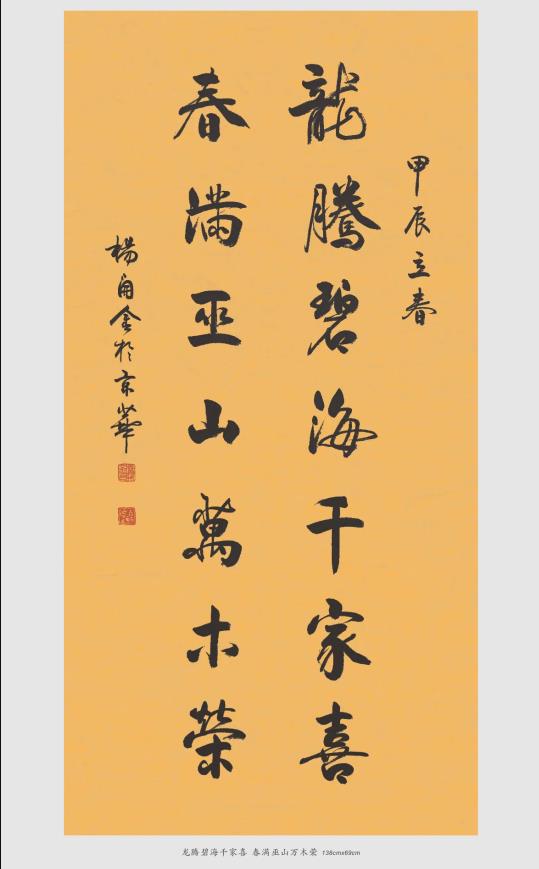 甲辰立春
龍騰碧海千家喜
春滿巫山萬木榮
楊自金於京華
龙腾碧海千家喜 春满巫山万木荣 136cmx69cm